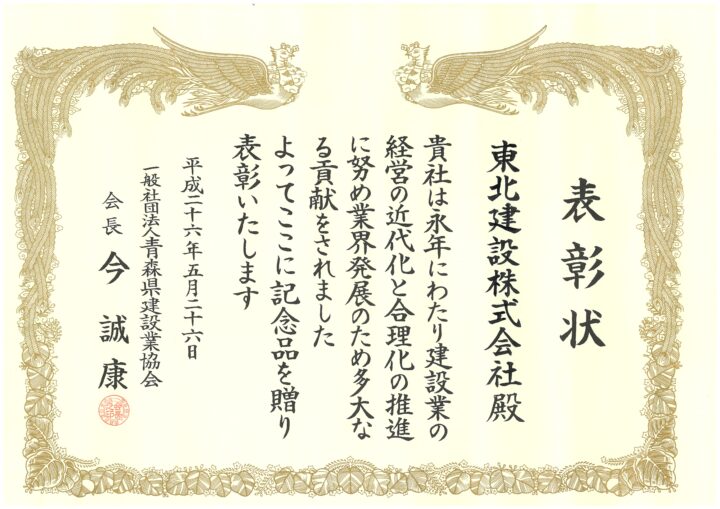 表彰状
東北建設株式会社殿
貴社は永年にわたり建設業の
経営の近代化と合理化の推進
に努め業界発展のため多大な
る貢献をされました
よってここに記念品を贈り
表彰いたします
平成二十六年五月二十六日
一般社団法人青森県建設業協会
会長 今 誠康